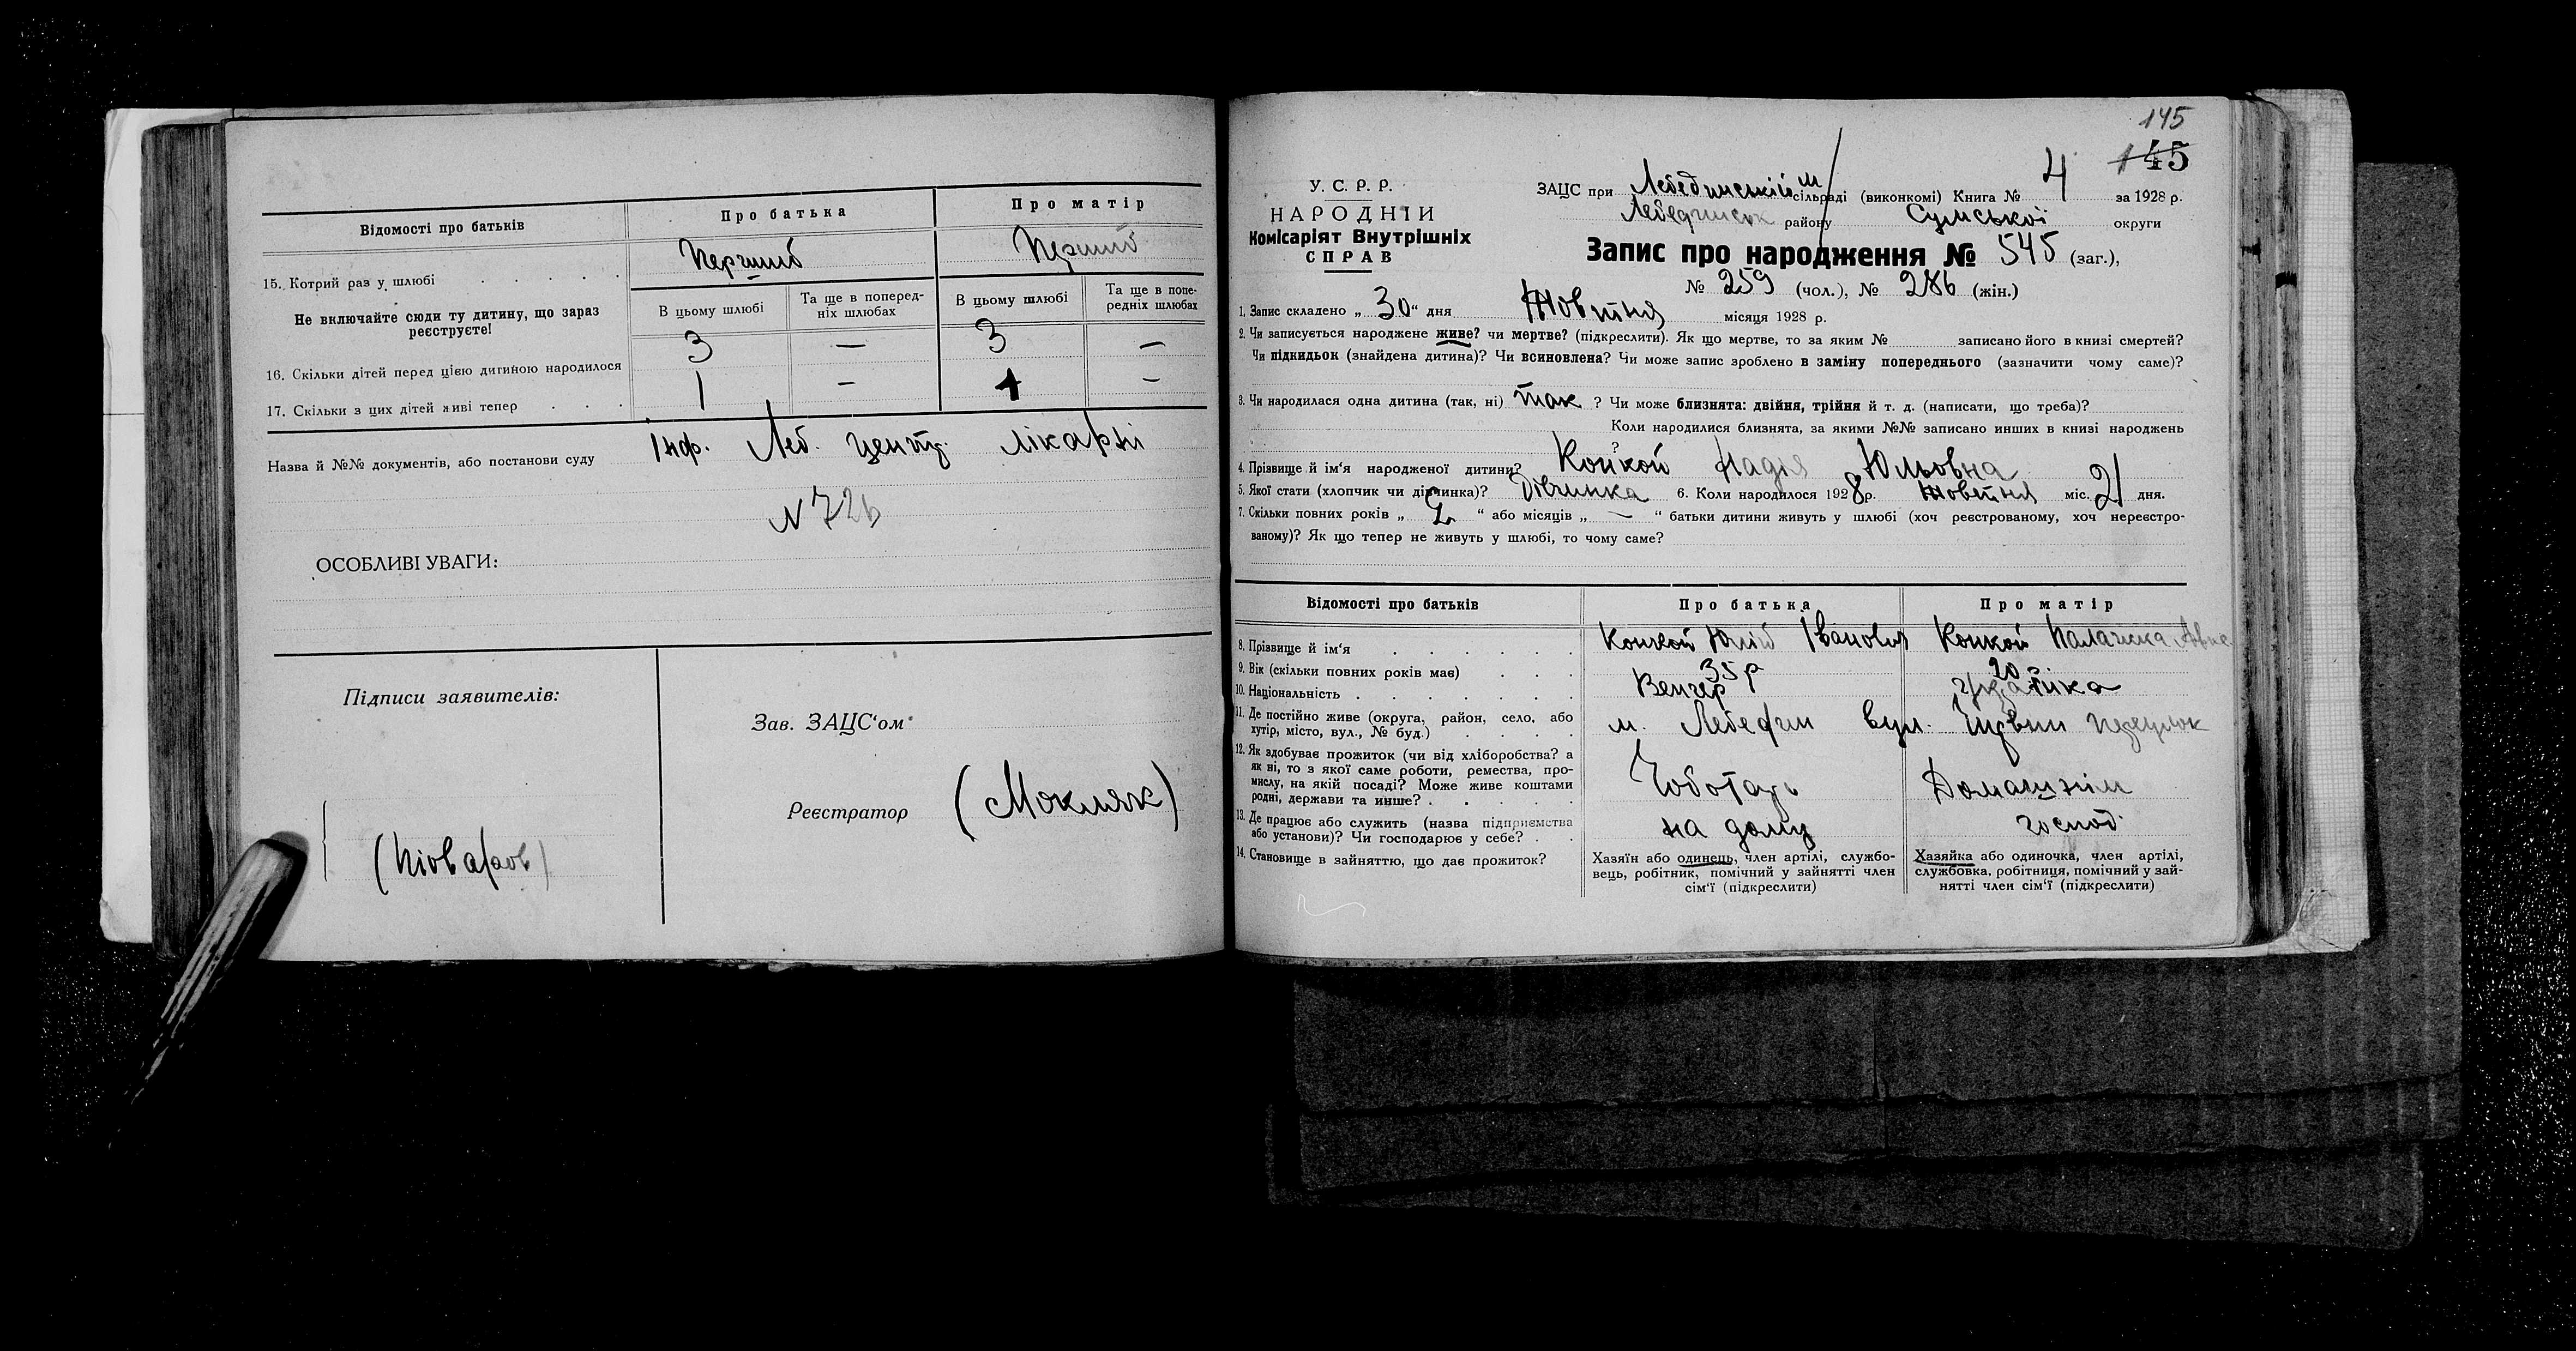 Відомості про батьків
Про батька
Про матір
15. Котрий раз у шлюбі
Перший
Перший
Не включайте сюди ту дитину, що зараз
реєструєте!
В цьому шлюбі
Та ще в поперед-
ніх шлюбах
В цьому шлюбі
Та ще в попе-
редніх шлюбах
16. Скільки дітей перед цією дитиною народилося
3
—
3
—
17. Скільки з цих дітей живі тепер
1
—
1
—
Назва й №№ документів, або постанови суду
Інф. Леб. центр. лікарні
N 726
ОСОБЛИВІ УВАГИ:
Підписи заявителів:
Зав. ЗАЦС'ом
Реєстратор (Мокляк)
145
145
У. С. Р. Р.
НАРОДНІЙ
Комісаріят Внутрішніх
СПРАВ
ЗАЦС при Лебединській м сільраді (виконкомі) Книга № 4 за 1928 р.
Лебединськ району Сумської округи
Запис про народження № 545 (заг.),
№ 259 (чол.), № 286 (жін.)
1. Запис складено „ 30 “ дня Жовтня місяця 1928 р.
2. Чи записується народжене живе? чи мертве? (підкреслити). Як що мертве, то за яким № записано його в книзі смертей?
Чи підкидьок (знайдена дитина)? Чи всиновлена? Чи може запис зроблено в заміну попереднього (зазначити чому саме)?
3. Чи народилася одна дитина (так, ні) так ? Чи може близнята: двійня, трійня й т. д. (написати, що треба)?
Коли народилися близнята, за якими №№ записано инших в книзі народжень
?
4. Прізвище й ім'я народженої дитини? Конкой Надія Юльовна
5. Якої стати (хлопчик чи дівчинка)? Дівчинка 6. Коли народилося 1928 р. Жовтня міс. 21 дня.
7. Скільки повних років „ “ або місяців „ — “ батьки дитини живуть у шлюбі (хоч реєстрованому, хоч нереєстро-
ваному)? Як що тепер не живуть у шлюбі, то чому саме?
Відомості про батьків
Про батька
Про матір
8. Прізвище й ім'я
Конкой Юлій Іванович
Конкой Палажка
9. Вік (скільки повних років має)
35 р
20 р.
10. Національність
Венгер
Українка
11. Де постійно живе (округа, район, село, або
хутір, місто, вул., № буд.)
м. Лебедин вул. Щрвин переулок
12. Як здобуває прожиток (чи від хліборобства? а
як ні, то з якої саме роботи, ремества, про-
мислу, на якій посаді? Може живе коштами
родні, держави та инше?
Чоботарь
Домашнім
13. Де працює або служить (назва підприємства
або установи)? Чи господарює у себе?
на дому
господ.
14. Становище в зайняттю, що дає прожиток?
Хазяїн або одинець, член артілі, службо-
вець, робітник, помічний у зайнятті член
сім'ї (підкреслити)
Хазяйка або одиночка, член артілі,
службовка, робітниця, помічний у зай-
нятті член сім'ї (підкреслити)